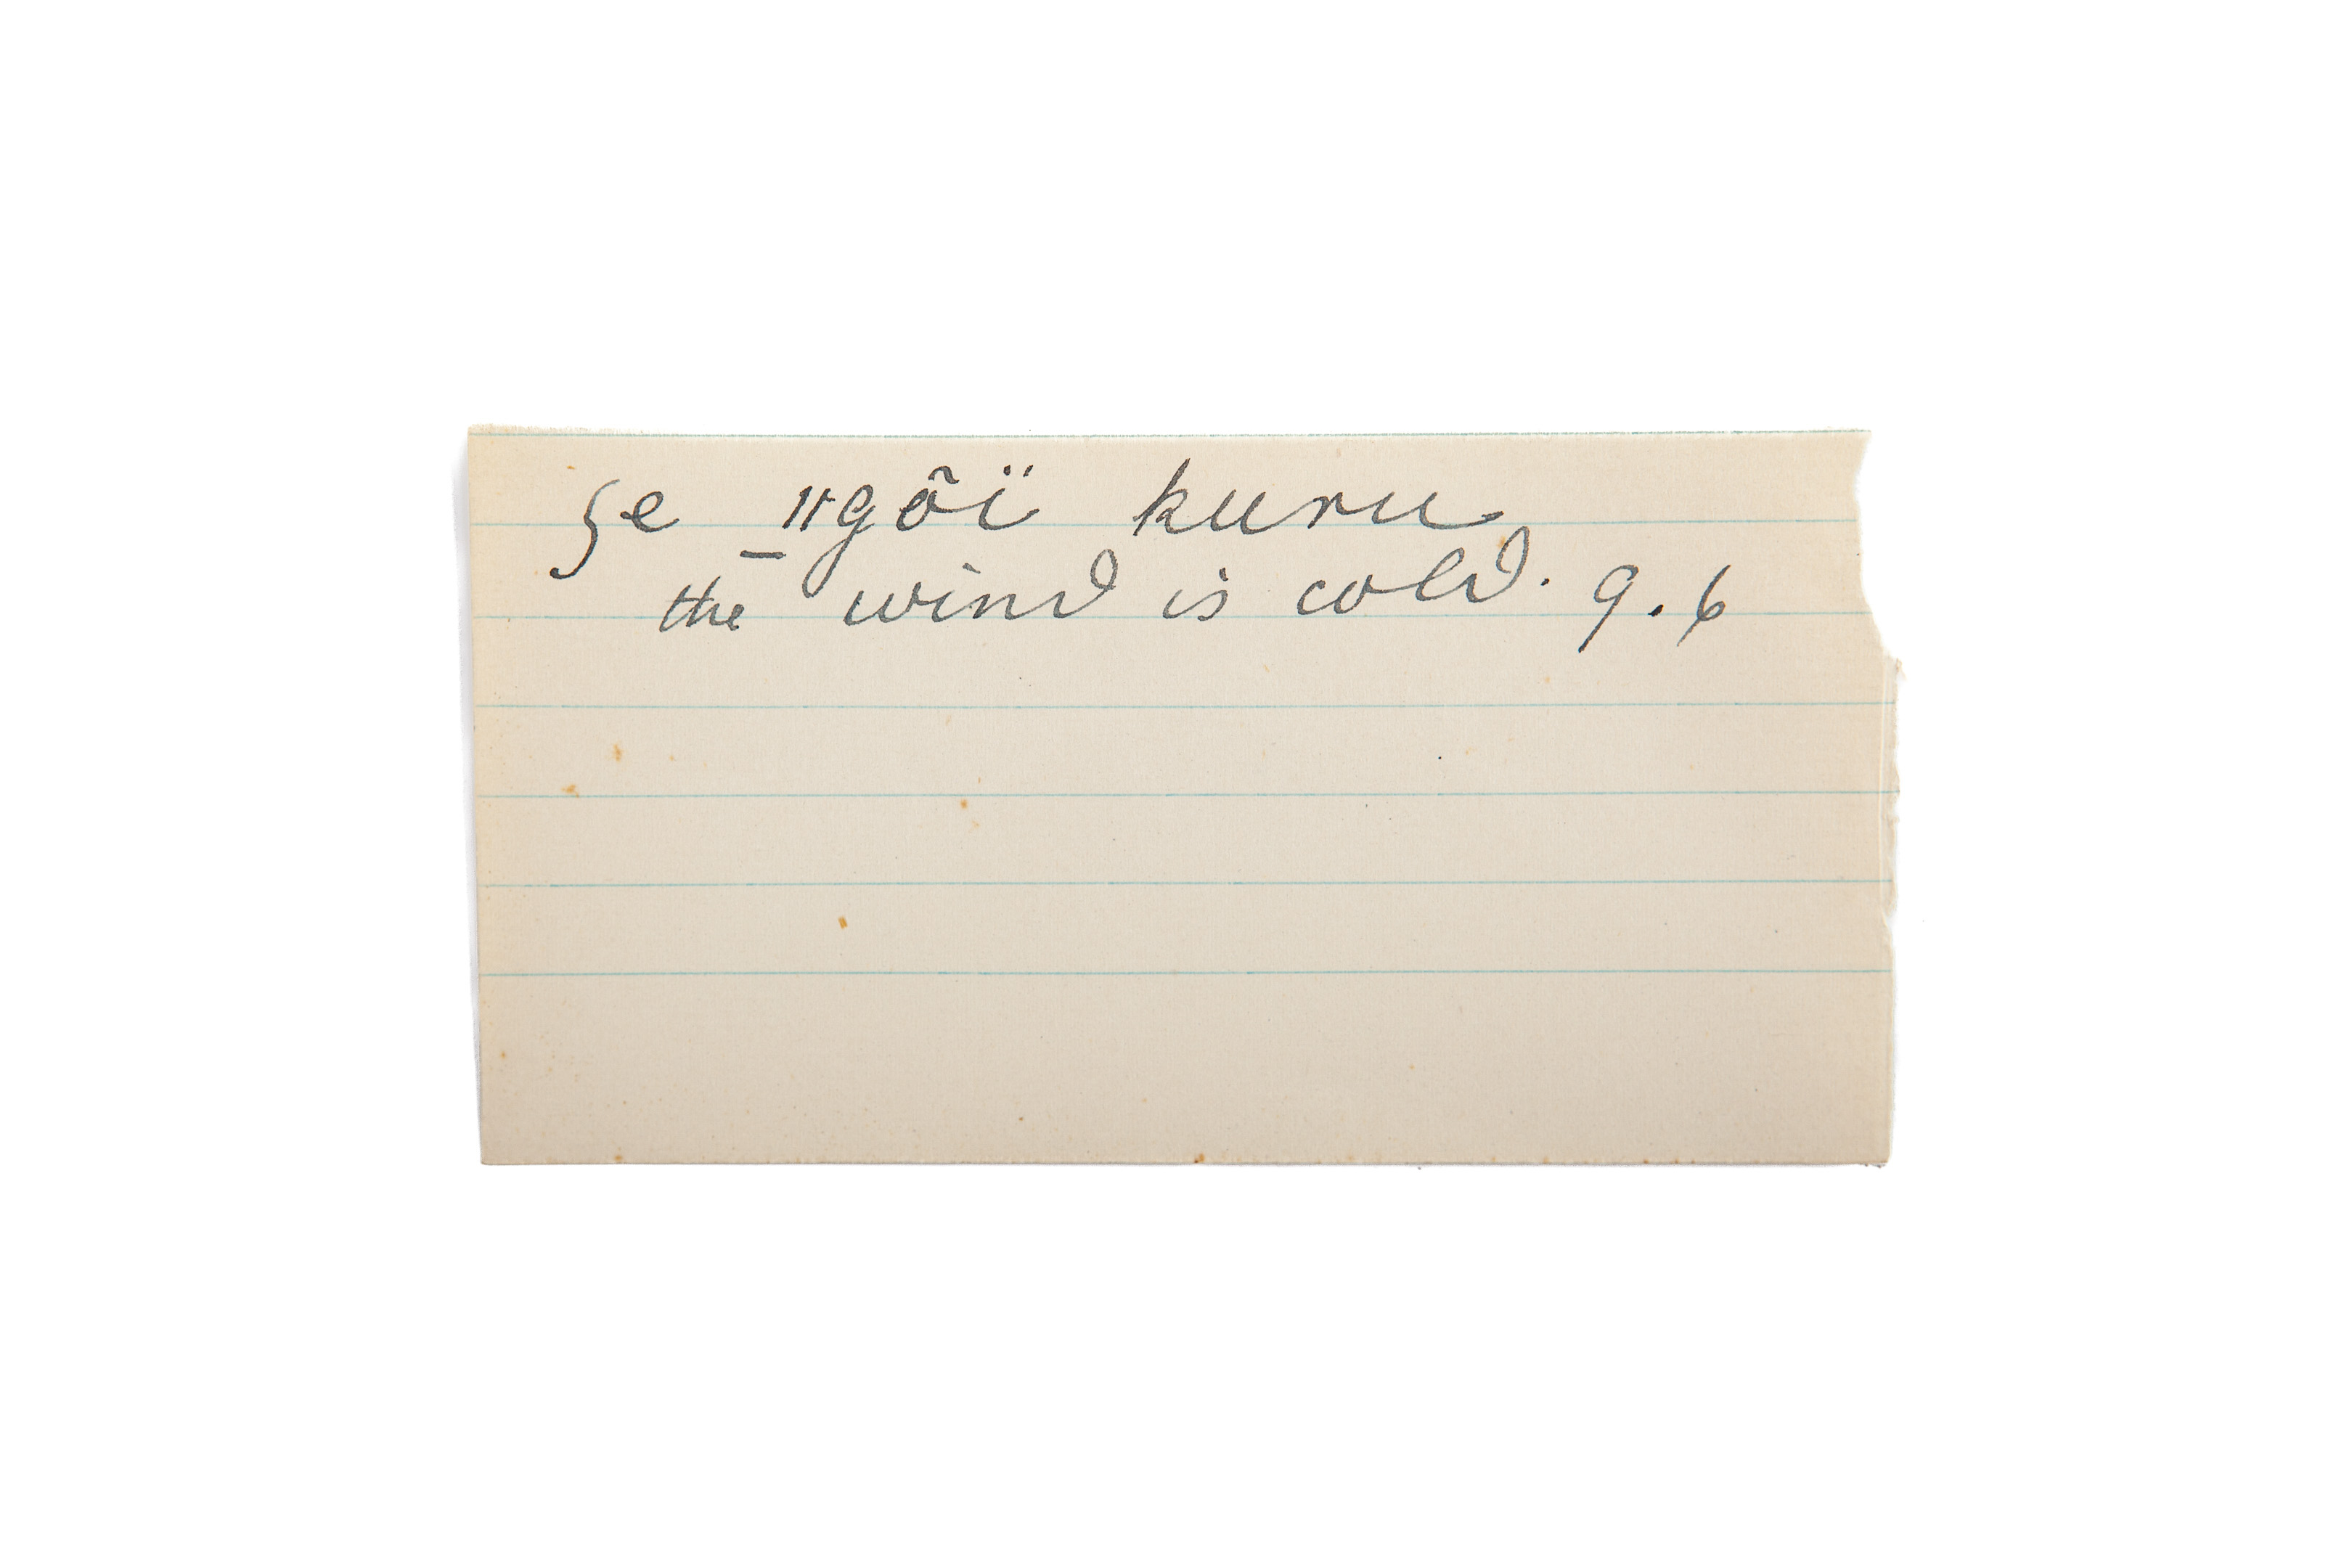 ʒe ‖gõï kuru
the wind is cold. 9.6